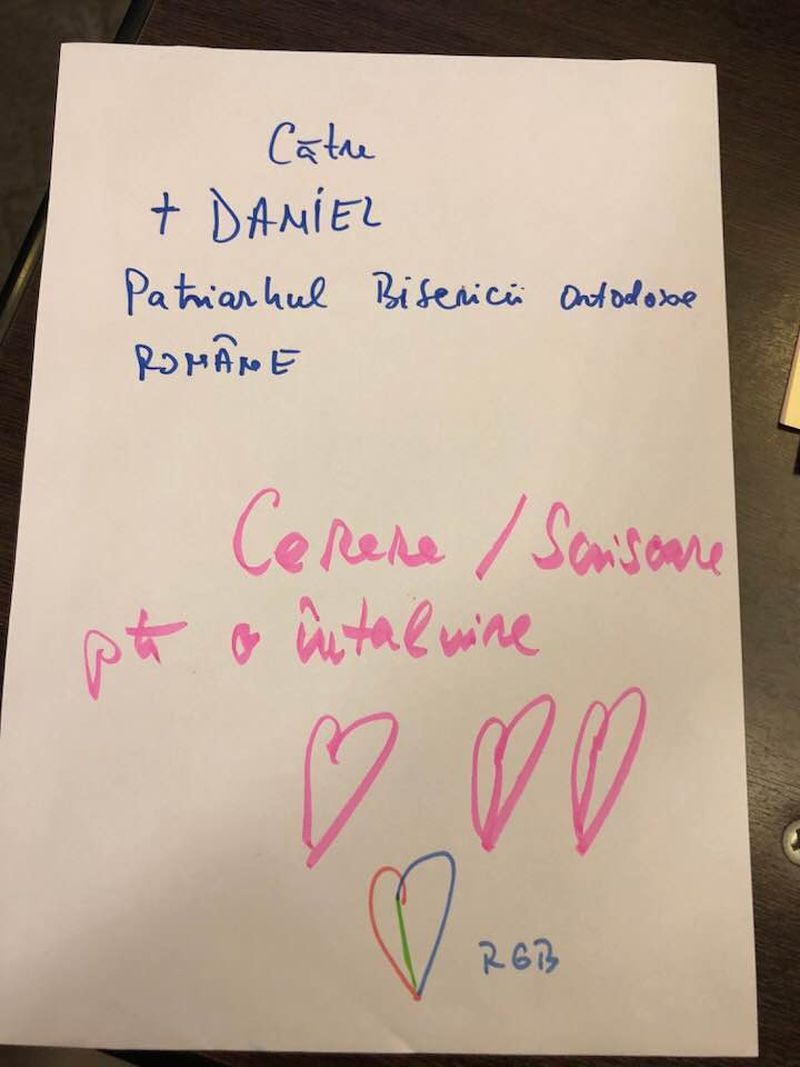 Către
+ DANIEL
Patriarhul Bisericii Ortodoxe
ROMÂNE
Cerere / Scrisoare
pt o întalnire
RGB